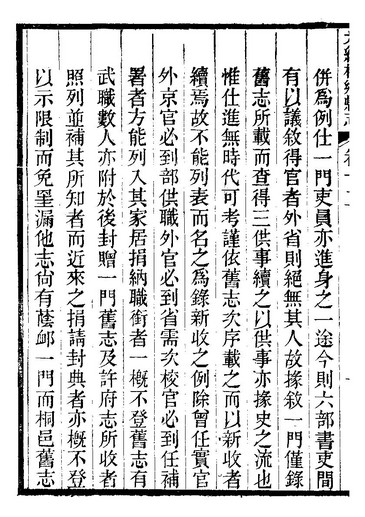 併爲例仕一門吏員亦進身之一途今則六部書吏間
有以議敘得官者外省則絕無其人故掾敘一門僅錄
舊志所載而查得三供事續之以供事亦掾史之流也
惟仕進無時代可考謹依舊志次序載之而以新收者
續焉故不能列表而名之爲錄新收之例除曾任實官
外京官必到部供職外官必到省需次校官必到任補
署者方能列入其家居捐納職銜者一槪不登舊志有
武職數人亦附於後封贈一門舊志及許府志所收者
照列並補其所知者而近來之捐請封典者亦槪不登
以示限制而免罣漏他志尚有蔭卹一門而桐邑舊志